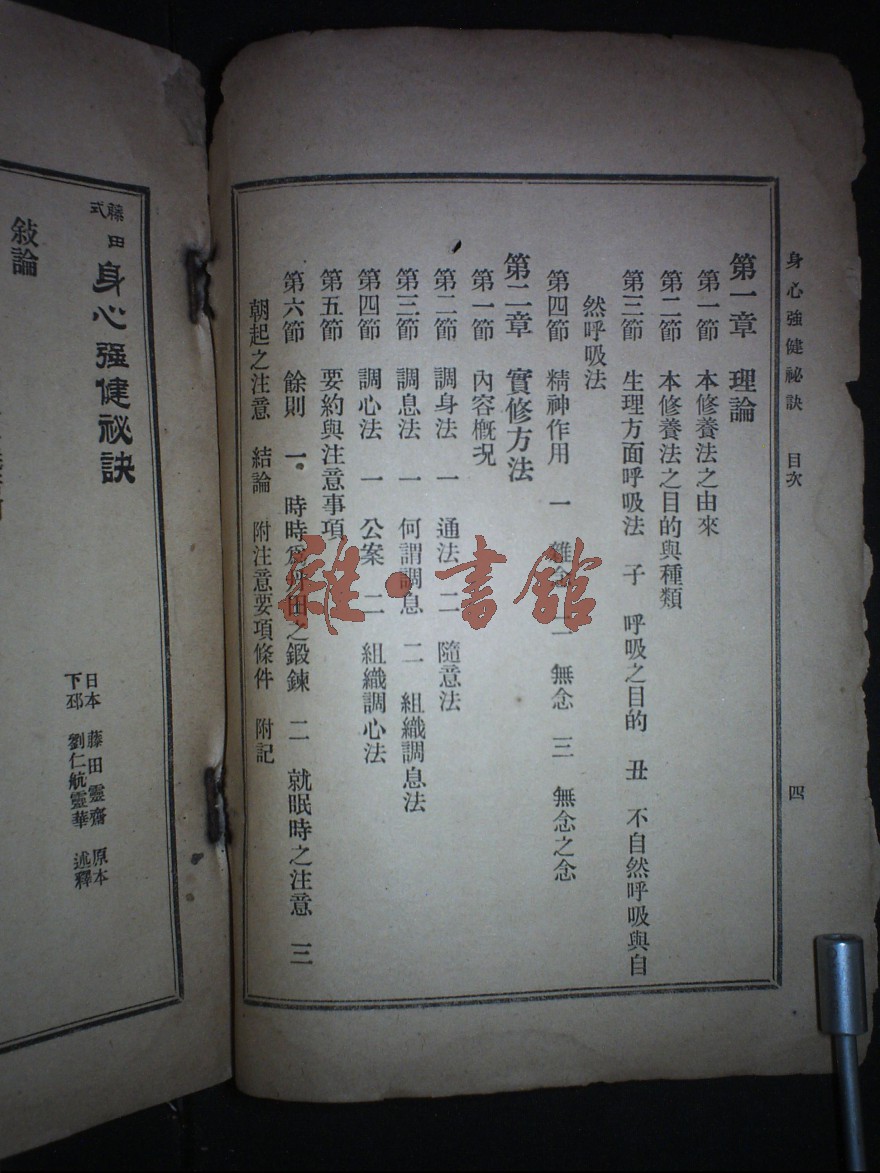 身心強健祕訣 目次 四
第一章 理論
第一節 本修養法之由來
第二節 本修養法之目的與種類
第三節 生理方面呼吸法 子 呼吸之目的 丑 不自然呼吸與自
然呼吸法
第四節 精神作用 一 雜念 二 無念 三 無念之念
第二章 實修方法
第一節 內容概況
第二節 調身法 一 通法 二 隨意法
第三節 調息法 一 何謂調息 二 組織調息法
第四節 調心法 一 公案 二 組織調心法
第五節 要約與注意事項
第六節 餘則 一 時時爲丹田之鍛鍊 二 就眠時之注意 三
朝起之注意 結論 附注意要項條件 附記
雜·書館
藤田式身心强健祕訣
日本 藤田靈齋 原本
下邳 劉仁航靈華 述釋
敍論